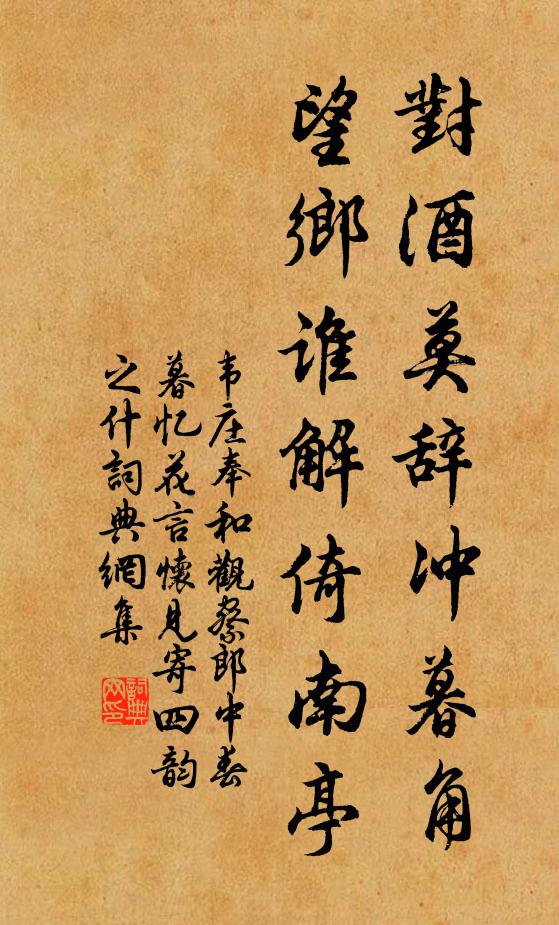 對酒莫辞冲暮角
望鄉谁解倚南亭
韦庄奉和觀察郎中春
暮忆花言懷見寄四韵
之什詞典網集
詞典
网印